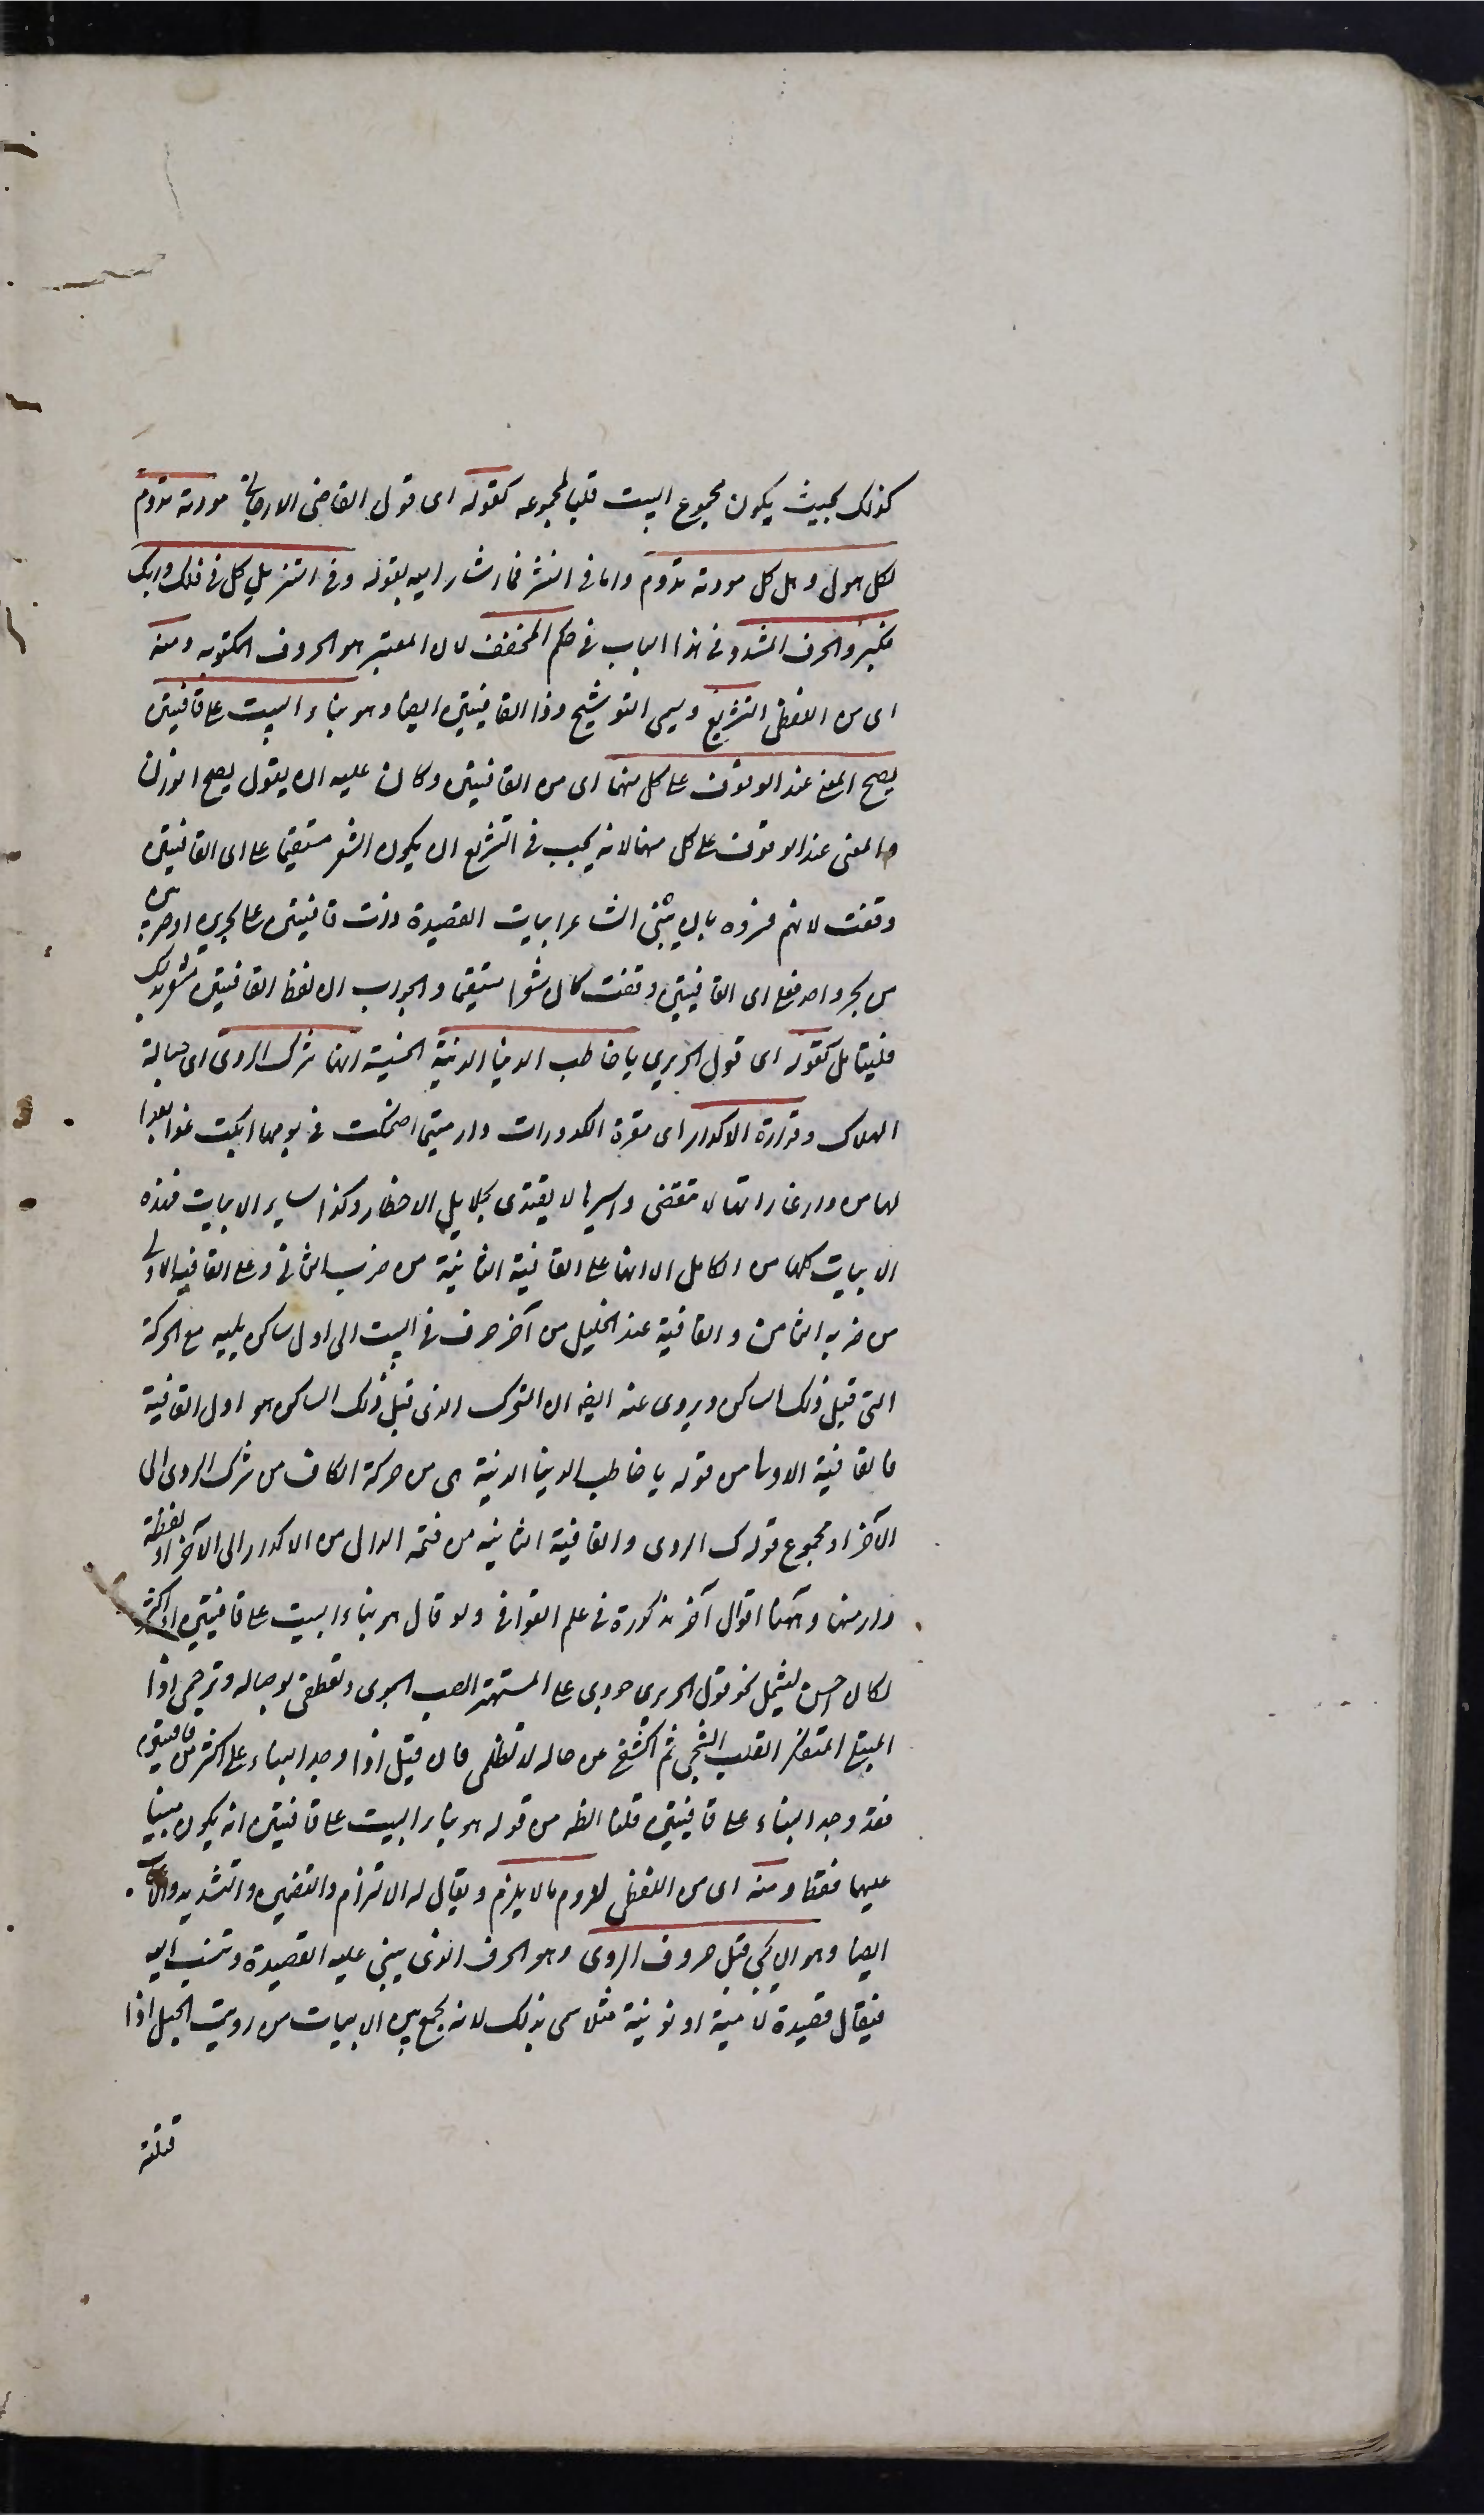 كذلك بحيث يكون مجموع البيت قلبا لمجموعه كقوله اى قول القاضى الارجانى مودته تدوم
لكل هول وهل كل مودته تدوم واما فى النثر فما اشار اليه بقوله وفى التنزيل كل فى فلك وربك
فكبر والحرف المشدد فى هذا الباب فى حكم المخفف لان المعتبر هو الحروف المكتوبه ومنه
اى من اللفظى التشريع ويسمى التوشيح وذا القافيتين ايضا وهو بناء البيت على قافيتين
يصح المعنى عند الوقوف على كل منهما اى من القافيتين وكان عليه ان يقول يصح الوزن
والمعنى عند الوقوف على كل منهما لانه يجب فى التشريع ان يكون الشعر مستقيما على اى القافيتين
وقفت لانهم فسروه بان يبنى الشاعر ابيات القصيدة ذات قافيتين على بحرين او ضربين
من بحر واحد فعلى اى القافيتين وقفت كان شعرا مستقيما والجواب ان لفظ القافيتين مشعر بذلك
فليتامل كقوله اى قول الحريرى يا خاطب الدنيا الدنية الخسيسة انها شرك الردى اى حبالة
الهلاك وقرارة الاكدار اى مقرة الكدورات دار متى اضحكت فى يومها ابكت غدا بعدا
لها من دار غاراتها لا تنقضى واسيرها لا يفتدى بجلايل الاخطار وكذا ساير الابيات فهذه
الابيات كلها من الكامل الا انها على القافية الثانية من ضربه الثانى وعلى القافية الاولى
من ضربه الثامن والقافية عند الخليل من آخر حرف فى البيت الى اول ساكن يليه مع الحركة
التى قبل ذلك الساكن ويروى عنه ايضا ان المتحرك الذى قبل ذلك الساكن هو اول القافية
فالقافية الاولى من قوله يا خاطب الدنيا الدنية هى من حركة الكاف من شرك الردى الى
الآخر او مجموع قوله ك الردى والقافية الثانيه من فتحه الدال من الاكدار الى الآخر او لفظة
دار منها وههنا اقوال آخر مذكورة فى علم القوافى ولو قال هو بناء البيت على قافيتين او اكثر
لكان احسن ليشمل نحو قول الحريرى جودى على المستهتر الصب الجوى وتعطفى بوصاله وترحمى اذا
المبتلى المتفكر القلب الشجى ثم اكشفى عن حاله لا تظلمى فان قيل اذا وجد البناء على اكثر من قافيتين
فقد وجد البناء على قافيتين قلنا الظه من قوله هو بناء البيت على قافيتين انه يكون مبنيا
عليهما فقط ومنه اى من اللفظى لزوم مالا يلزم ويقال له الالتزام والتضمين والتشديد
ايضا وهو ان يجئ قبل حروف الروى وهو الحرف الذى يبنى عليه القصيدة وتنسب اليه
فيقال قصيدة لامية او نونية مثلا سمى بذلك لانه يجمع بين الابيات من رويت الحبل اذا
فتلته